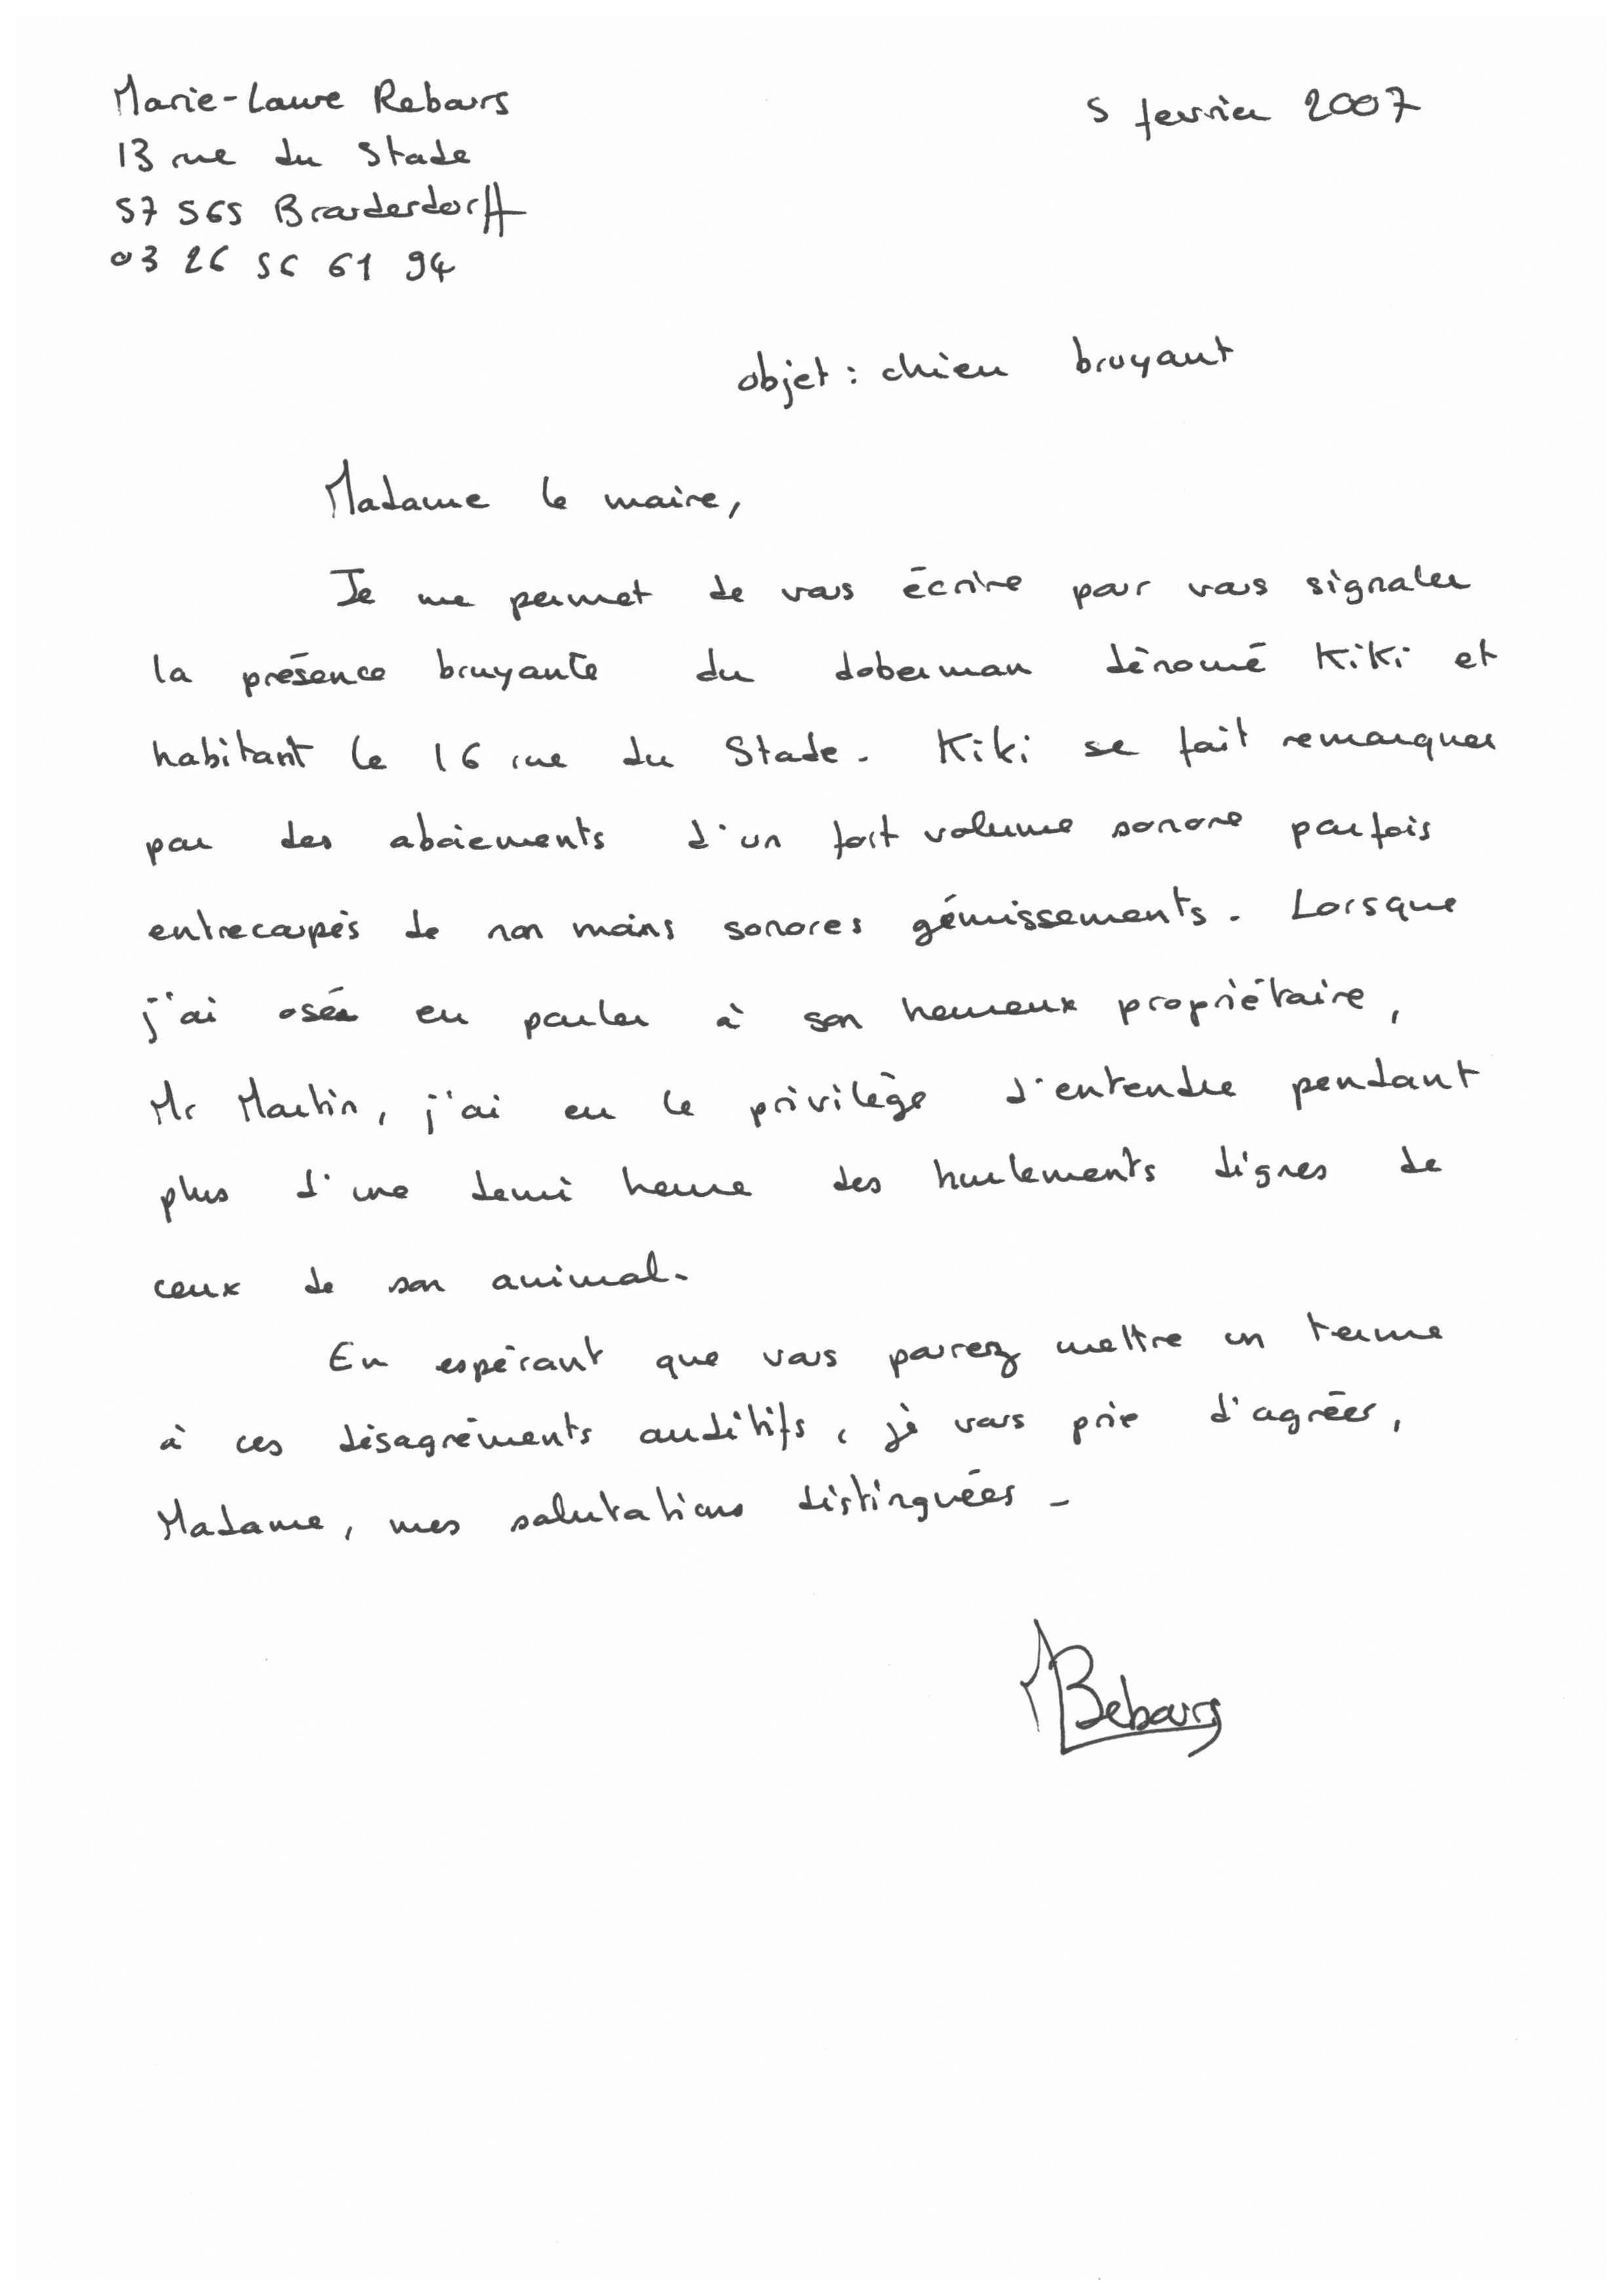 Marie-Laure Rebours
5 fevrier 2007
13 rue du Stade
57 565 Brouderdorff
03 26 56 61 94
objet : chien bruyant
Madame le maire,
Je me permet de vous écrire pour vous signaler
la présence bruyante du doberman dénomé Kiki et
habitant le 16 rue du Stade. Kiki se fait remarquer
par des aboiements d'un fort volume sonore parfois
entrecoupés de non moins sonores gémissements. Lorsque
j'ai osé en parler à son heureux propriétaire,
Mr Martin, j'ai eu le privilège d'entendre pendant
plus d'une demi heure des hurlements dignes de
ceux de son animal.
En espérant que vous pourrez mettre un terme
à ces désagréments auditifs, je vous prie d'agréer,
Madame, mes salutations distinguées.
Rebours